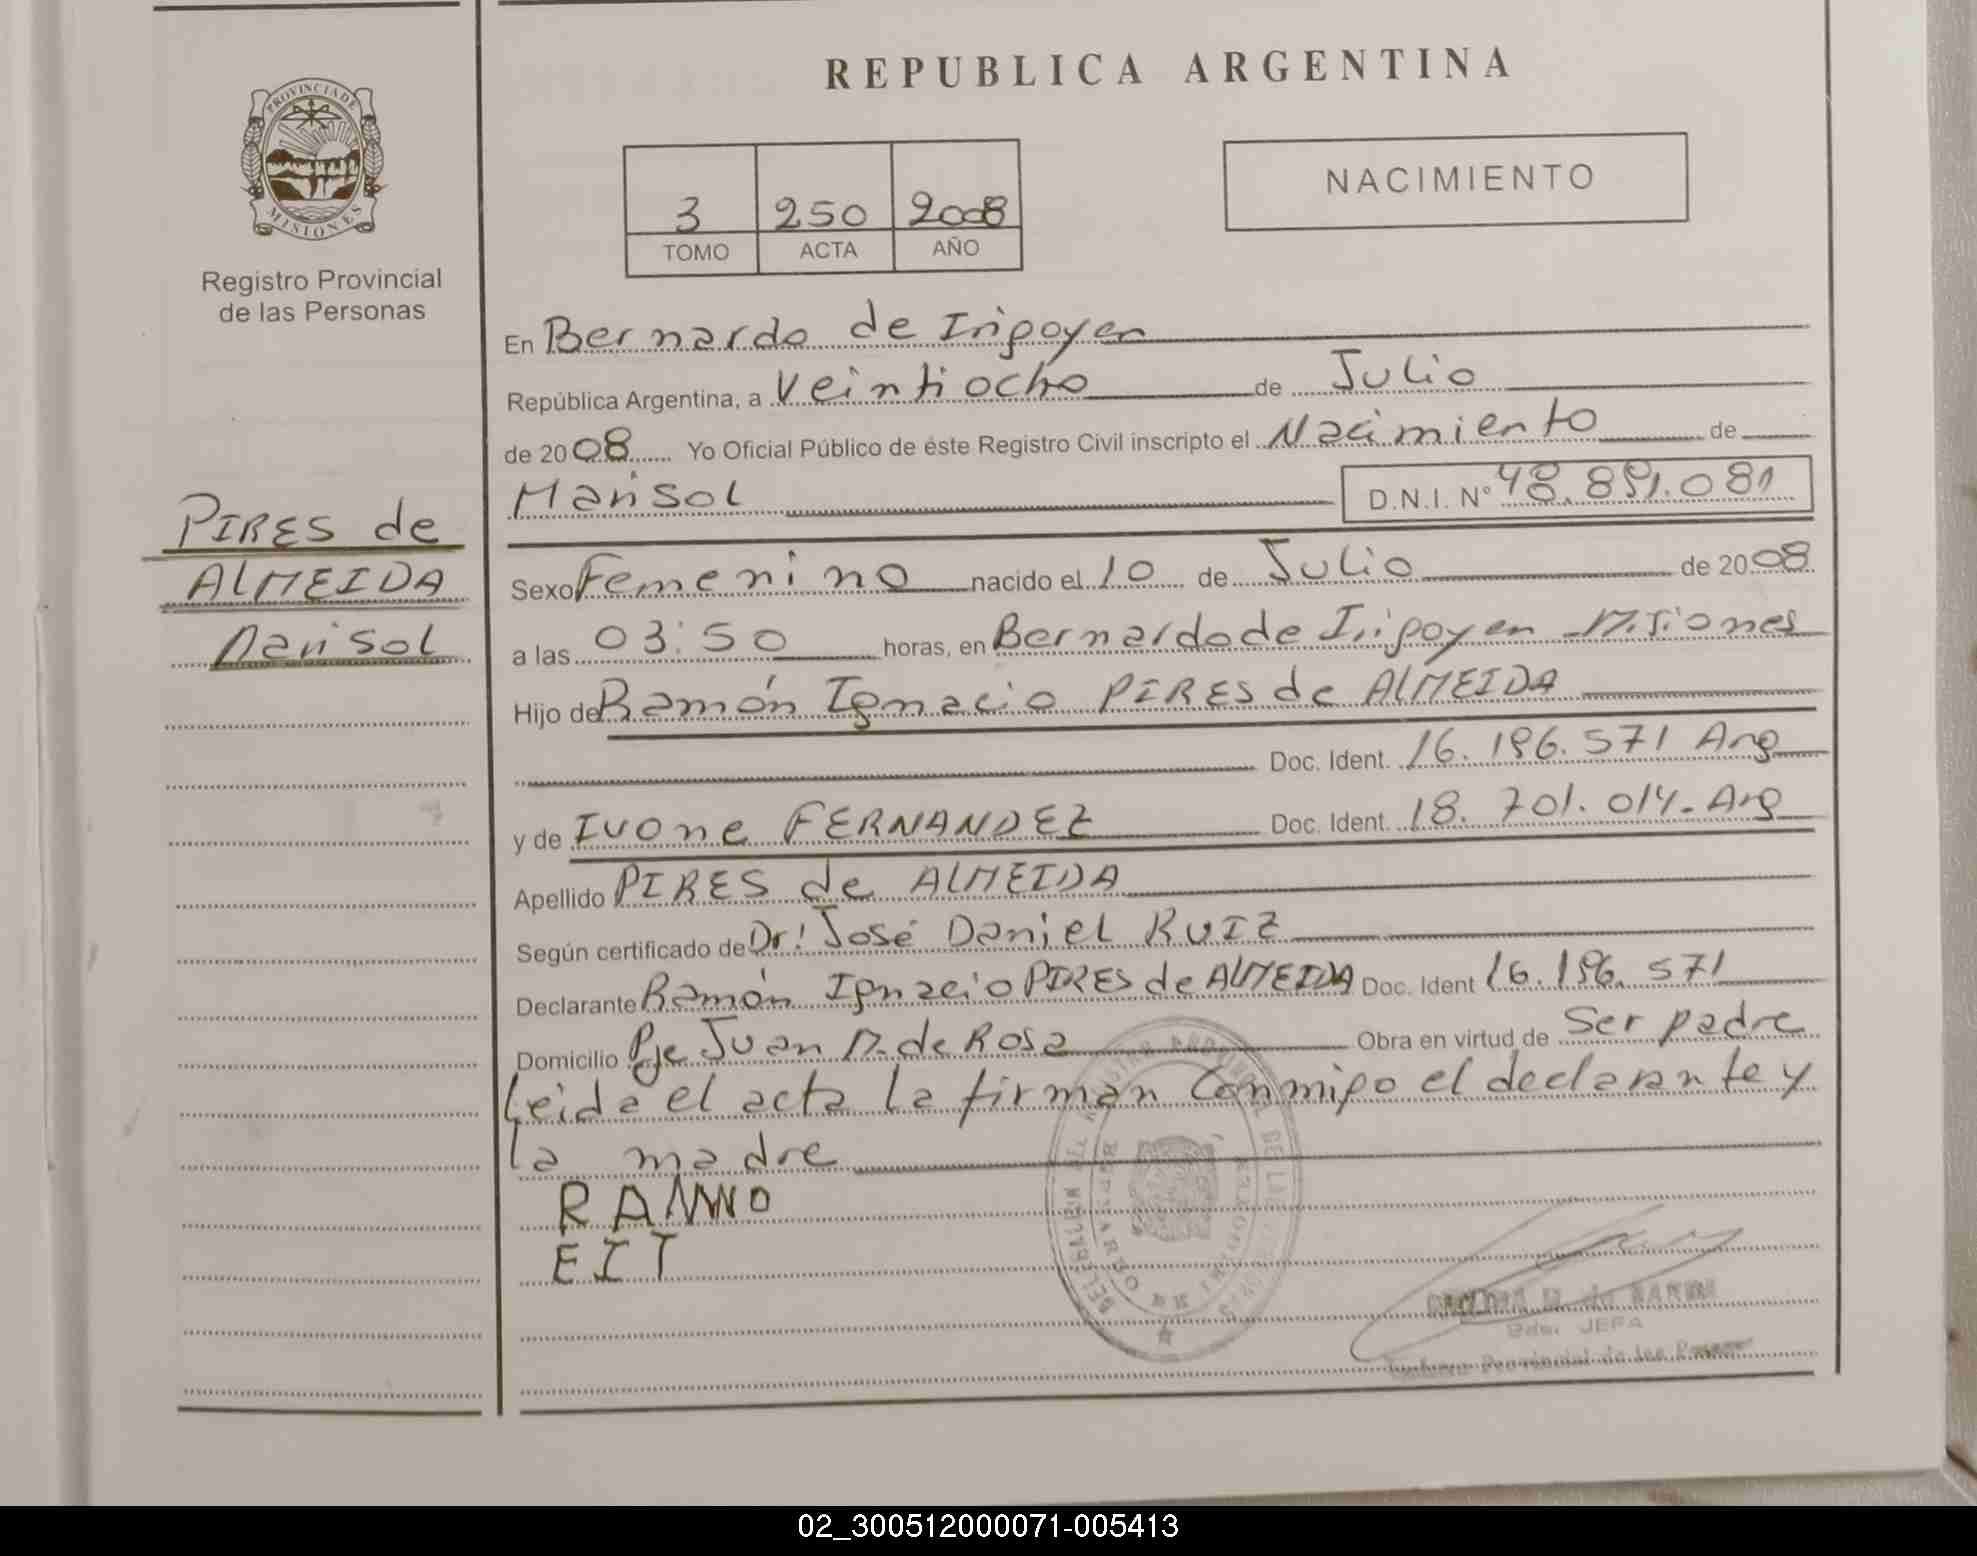 REPUBLICA ARGENTINA
PROVINCIA DE
MISIONES
Registro Provincial
de las Personas
3 250 2008
TOMO ACTA AÑO
NACIMIENTO
PIRES de
ALMEIDA
Marisol
En Bernardo de Irigoyen
República Argentina, a Veintiocho de Julio
de 2008 Yo Oficial Público de éste Registro Civil inscripto el Nacimiento de
Marisol D.N.I. Nº 48.891.081
Sexo Femenino nacido el 10 de Julio de 2008
a las 03:50 horas, en Bernardo de Irigoyen Misiones
Hijo de Ramón Ignacio PIRES de ALMEIDA
Doc. Ident. 16.196.571 Arg
y de Ivone FERNANDEZ Doc. Ident. 18.701.014- Arg
Apellido PIRES de ALMEIDA
Según certificado de Dr: José Daniel RUIZ
Declarante Ramón Ignacio PIRES de ALMEIDA Doc. Ident 16.196.571
Domicilio Pje Juan M. de Rosa Obra en virtud de Ser padre
Leida el acta la firman Conmigo el declarante y
la madre
EIT
JEFA
Provincial de las
02_300512000071-005413